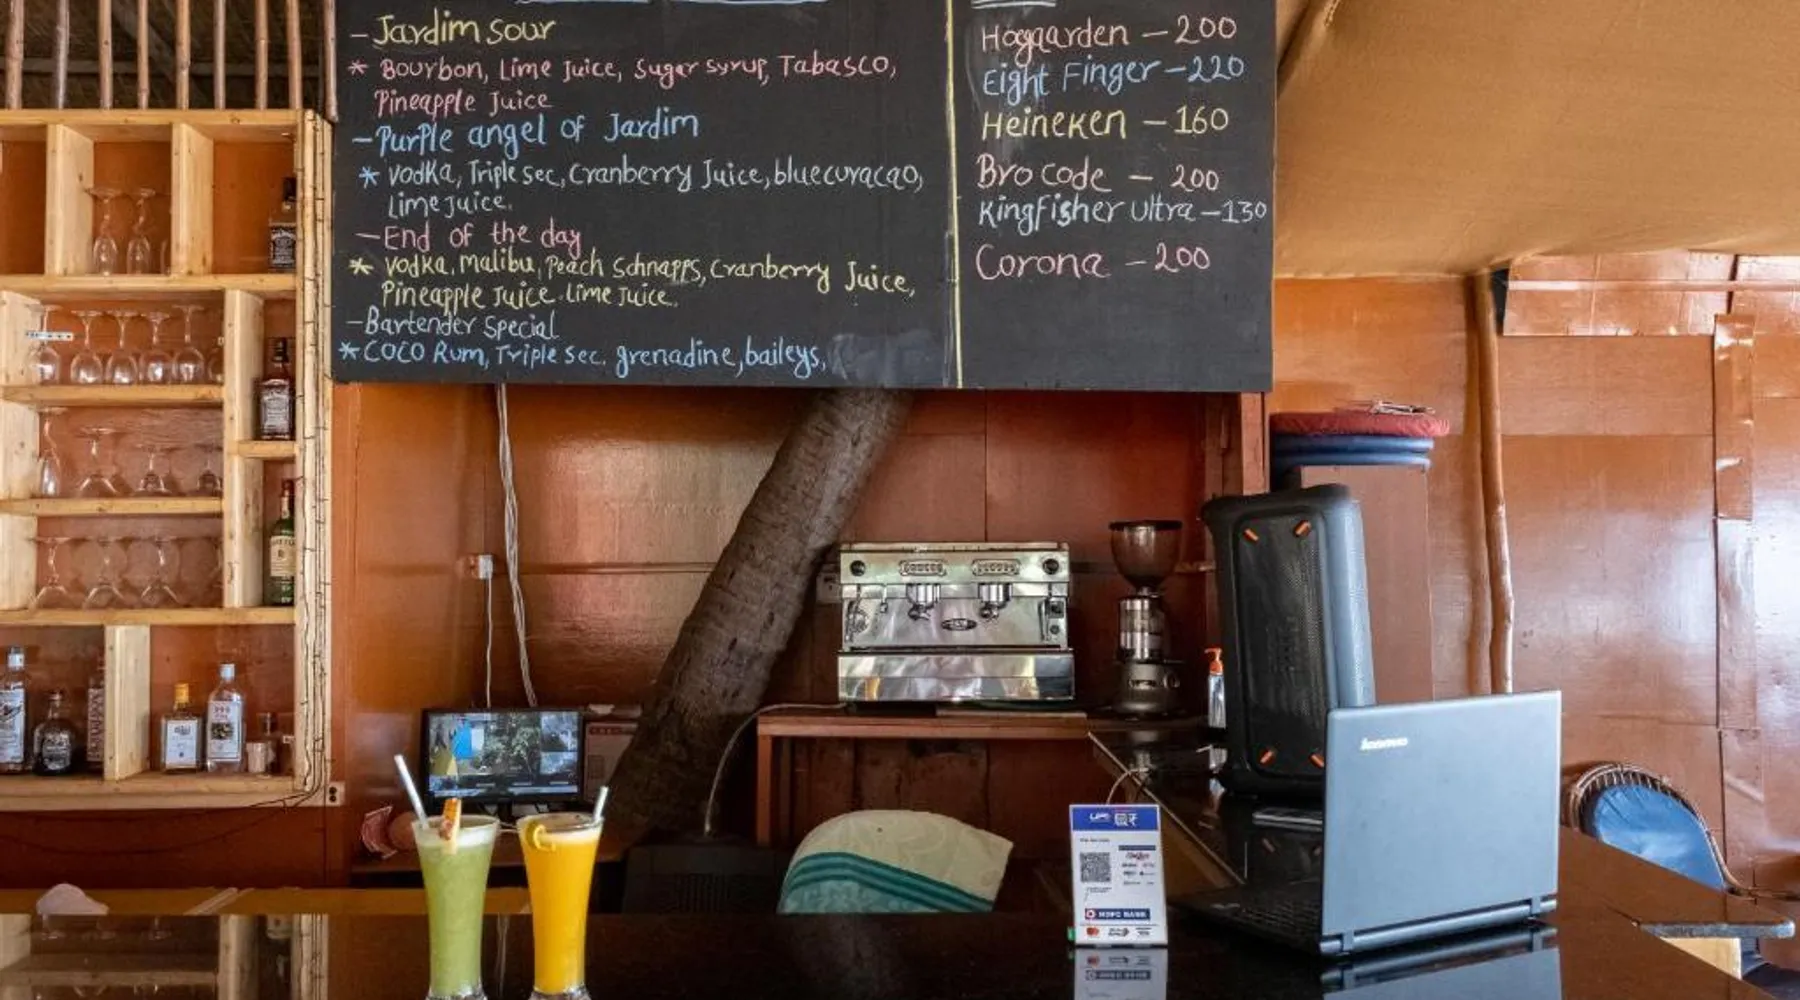 -Jardim sour
* Bourbon, Lime Juice, Sugar syrup, Tabasco,
Pineapple Juice
-Purple angel of Jardim
* Vodka, Triple sec, Cranberry Juice, bluecuracao,
Lime Juice.
-End of the day
* Vodka, Malibu, Peach Schnapps, Cranberry Juice,
Pineapple Juice. Lime Juice.
-Bartender Special
* COCO Rum, Triple sec. grenadine, baileys,
Hoegaarden - 200
Eight Finger - 220
Heineken - 160
Bro code - 200
Kingfisher Ultra - 130
Corona - 200
lenovo
UPI
HDFC BANK